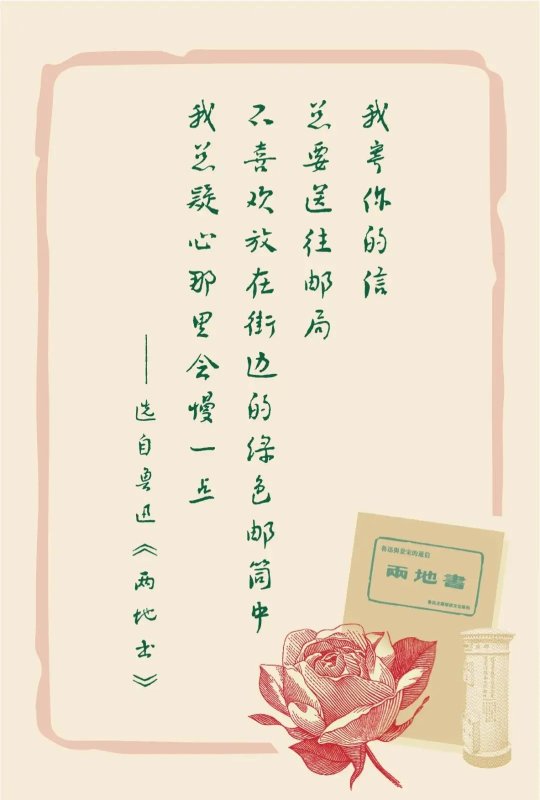 我寄你的信
总要送往邮局
不喜欢放在街边的绿色邮筒中
我总疑心那里会慢一点
——选自鲁迅《两地书》
魯迅與景宋的通信
兩地書